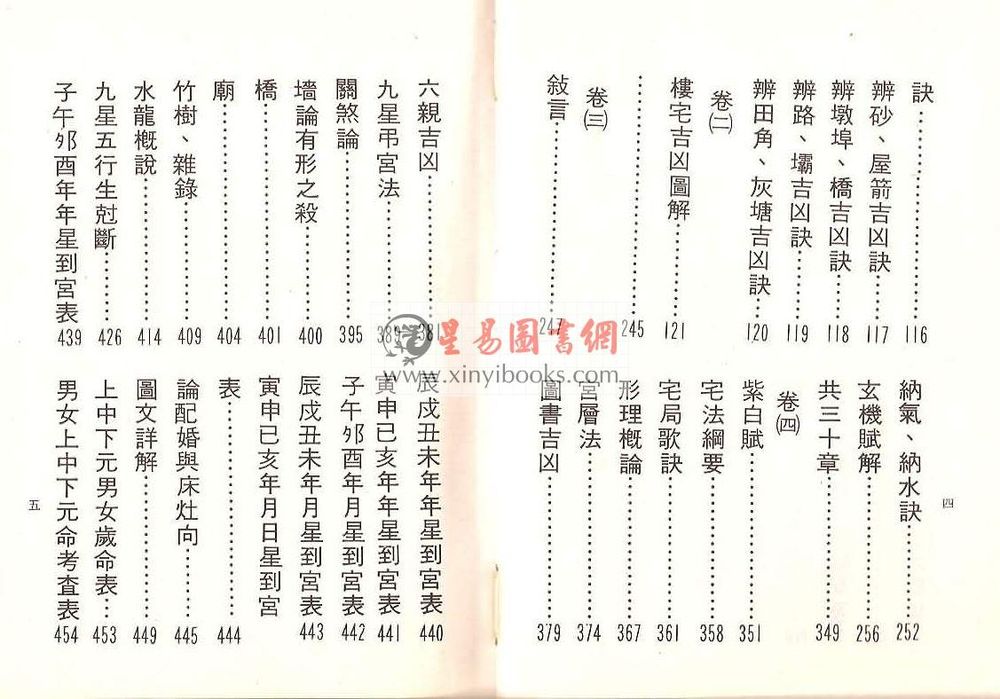 訣……………………116
辨砂、屋箭吉凶訣……117
辨墩埠、橋吉凶訣……118
辨路、壩吉凶訣………119
辨田角、灰塘吉凶訣…120
卷㈡
樓宅吉凶圖解…………121
………………………245
卷㈢
敍言……………………247
納氣、納水訣…………252
玄機賦解………………256
共三十章………………349
卷㈣
紫白賦…………………351
宅法綱要………………358
宅局歌訣………………361
形理概論………………367
宮層法…………………374
圖書吉凶………………379
四
六親吉凶………………381
九星弔宮法……………389
關煞論…………………395
墻論有形之殺…………400
橋………………………401
廟………………………404
竹樹、雜錄……………409
水龍概說………………414
九星五行生尅斷………426
子午夘酉年年星到宮表439
辰戍丑未年年星到宮表440
寅申巳亥年年星到宮表441
子午夘酉年月星到宮表442
辰戍丑未年月星到宮表443
寅申巳亥年月日星到宮
表………………………444
論配婚與床灶向………445
圖文詳解………………449
上中下元男女歲命表…453
男女上中下元命考查表454
五
星易圖書網
www.xinyibooks.com